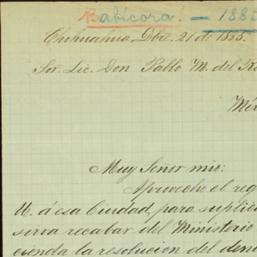 Babícora. — 1882
Chihuahua, Dbre. 21 de 1883.
Sor. Lic. Don Pablo M. del
Méx
Muy Señor mio:
Aproveche el reg
U. á esa Ciudad, para suplic
sirva recabar del Ministerio
cienda la resolucion del den